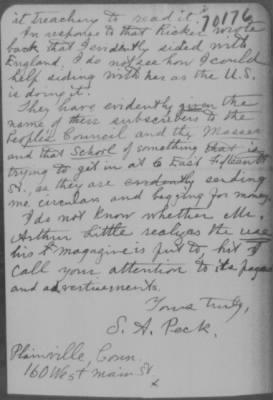 ist treachery to read it."
70176
In response to that Ricker wrote
back that I evidently sided with
England. I do not see how I could
help siding with her as the U.S.
is doing it.
They have evidently given the
name of their subscribers to the
People's Council and the Masses
and that School of something that is
trying to get in at 6 East Fifteenth
St., as they are evidently sending
me circulars and begging for money.
I do not know whether Mr.
Arthur Little realizes the use
his magazine is put to, but I
call your attention to its pages
and advertisements.
Yours truly,
S. A. Peck.
Plainville, Conn.
160 West Main St.
x